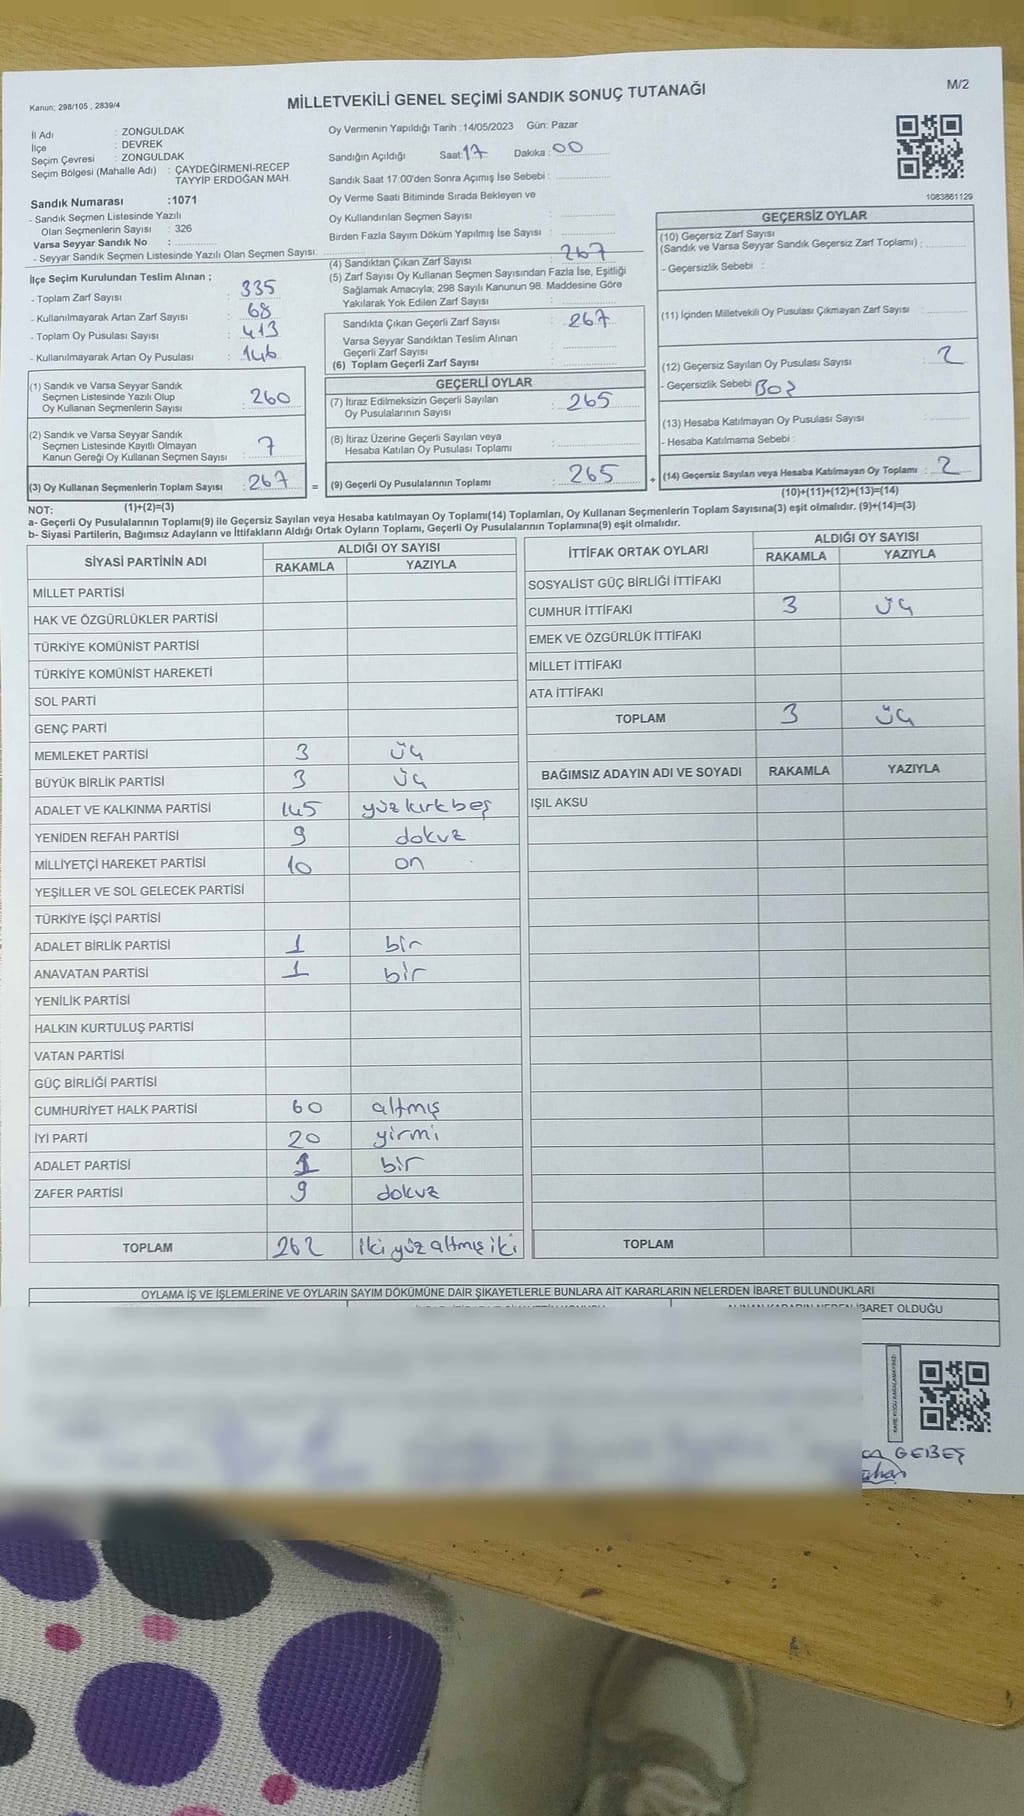 Kanun; 298/105 , 2839/4
MİLLETVEKİLİ GENEL SEÇİMİ SANDIK SONUÇ TUTANAĞI
M/2
İl Adı : ZONGULDAK
İlçe : DEVREK
Seçim Çevresi : ZONGULDAK
Seçim Bölgesi (Mahalle Adı) : ÇAYDEĞİRMENİ-RECEP
TAYYİP ERDOĞAN MAH.
Sandık Numarası :1071
- Sandık Seçmen Listesinde Yazılı
Olan Seçmenlerin Sayısı : 326
Varsa Seyyar Sandık No :
- Seyyar Sandık Seçmen Listesinde Yazılı Olan Seçmen Sayısı:
İlçe Seçim Kurulundan Teslim Alınan ;
- Toplam Zarf Sayısı : 335
- Kullanılmayarak Artan Zarf Sayısı : 68
- Toplam Oy Pusulası Sayısı : 413
- Kullanılmayarak Artan Oy Pusulası : 146
(1) Sandık ve Varsa Seyyar Sandık
Seçmen Listesinde Yazılı Olup
Oy Kullanan Seçmenlerin Sayısı : 260
(2) Sandık ve Varsa Seyyar Sandık
Seçmen Listesinde Kayıtlı Olmayan
Kanun Gereği Oy Kullanan Seçmen Sayısı : 7
(3) Oy Kullanan Seçmenlerin Toplam Sayısı : 267
Oy Vermenin Yapıldığı Tarih :14/05/2023 Gün: Pazar
Sandığın Açıldığı Saat:17 Dakika :00
Sandık Saat 17:00'den Sonra Açımış İse Sebebi :
Oy Verme Saati Bitiminde Sırada Bekleyen ve
Oy Kullandırılan Seçmen Sayısı :
Birden Fazla Sayım Döküm Yapılmış İse Sayısı :
(4) Sandıktan Çıkan Zarf Sayısı : 267
(5) Zarf Sayısı Oy Kullanan Seçmen Sayısından Fazla İse, Eşitliği
Sağlamak Amacıyla; 298 Sayılı Kanunun 98. Maddesine Göre
Yakılarak Yok Edilen Zarf Sayısı :
Sandıkta Çıkan Geçerli Zarf Sayısı : 267
Varsa Seyyar Sandıktan Teslim Alınan
Geçerli Zarf Sayısı :
(6) Toplam Geçerli Zarf Sayısı :
GEÇERLİ OYLAR
(7) İtiraz Edilmeksizin Geçerli Sayılan
Oy Pusulalarının Sayısı : 265
(8) İtiraz Üzerine Geçerli Sayılan veya
Hesaba Katılan Oy Pusulası Toplamı :
= (9) Geçerli Oy Pusulalarının Toplamı : 265
1083861129
GEÇERSİZ OYLAR
(10) Geçersiz Zarf Sayısı
(Sandık ve Varsa Seyyar Sandık Geçersiz Zarf Toplamı) :
- Geçersizlik Sebebi :
(11) İçinden Milletvekili Oy Pusulası Çıkmayan Zarf Sayısı :
(12) Geçersiz Sayılan Oy Pusulası Sayısı : 2
- Geçersizlik Sebebi Boz
(13) Hesaba Katılmayan Oy Pusulası Sayısı :
- Hesaba Katılmama Sebebi :
+ (14) Geçersiz Sayılan veya Hesaba Katılmayan Oy Toplamı : 2
NOT: (1)+(2)=(3) (10)+(11)+(12)+(13)=(14)
a- Geçerli Oy Pusulalarının Toplamı(9) ile Geçersiz Sayılan veya Hesaba katılmayan Oy Toplamı(14) Toplamları, Oy Kullanan Seçmenlerin Toplam Sayısına(3) eşit olmalıdır. (9)+(14)=(3)
b- Siyasi Partilerin, Bağımsız Adayların ve İttifakların Aldığı Ortak Oyların Toplamı, Geçerli Oy Pusulalarının Toplamına(9) eşit olmalıdır.
SİYASİ PARTİNİN ADI ALDIĞI OY SAYISI
RAKAMLA YAZIYLA
MİLLET PARTİSİ
HAK VE ÖZGÜRLÜKLER PARTİSİ
TÜRKİYE KOMÜNİST PARTİSİ
TÜRKİYE KOMÜNİST HAREKETİ
SOL PARTİ
GENÇ PARTİ
MEMLEKET PARTİSİ 3 üç
BÜYÜK BİRLİK PARTİSİ 3 üç
ADALET VE KALKINMA PARTİSİ 145 yüzkırkbeş
YENİDEN REFAH PARTİSİ 9 dokuz
MİLLİYETÇİ HAREKET PARTİSİ 10 on
YEŞİLLER VE SOL GELECEK PARTİSİ
TÜRKİYE İŞÇİ PARTİSİ
ADALET BİRLİK PARTİSİ 1 bir
ANAVATAN PARTİSİ 1 bir
YENİLİK PARTİSİ
HALKIN KURTULUŞ PARTİSİ
VATAN PARTİSİ
GÜÇ BİRLİĞİ PARTİSİ
CUMHURİYET HALK PARTİSİ 60 altmış
İYİ PARTİ 20 yirmi
ADALET PARTİSİ 1 bir
ZAFER PARTİSİ 9 dokuz
TOPLAM 262 İki yüz altmış iki
İTTİFAK ORTAK OYLARI ALDIĞI OY SAYISI
RAKAMLA YAZIYLA
SOSYALİST GÜÇ BİRLİĞİ İTTİFAKI
CUMHUR İTTİFAKI 3 üç
EMEK VE ÖZGÜRLÜK İTTİFAKI
MİLLET İTTİFAKI
ATA İTTİFAKI
TOPLAM 3 üç
BAĞIMSIZ ADAYIN ADI VE SOYADI RAKAMLA YAZIYLA
IŞIL AKSU
TOPLAM
OYLAMA İŞ VE İŞLEMLERİNE VE OYLARIN SAYIM DÖKÜMÜNE DAİR ŞİKAYETLERLE BUNLARA AİT KARARLARIN NELERDEN İBARET BULUNDUKLARI
İBARET OLDUĞU
GEBEŞ